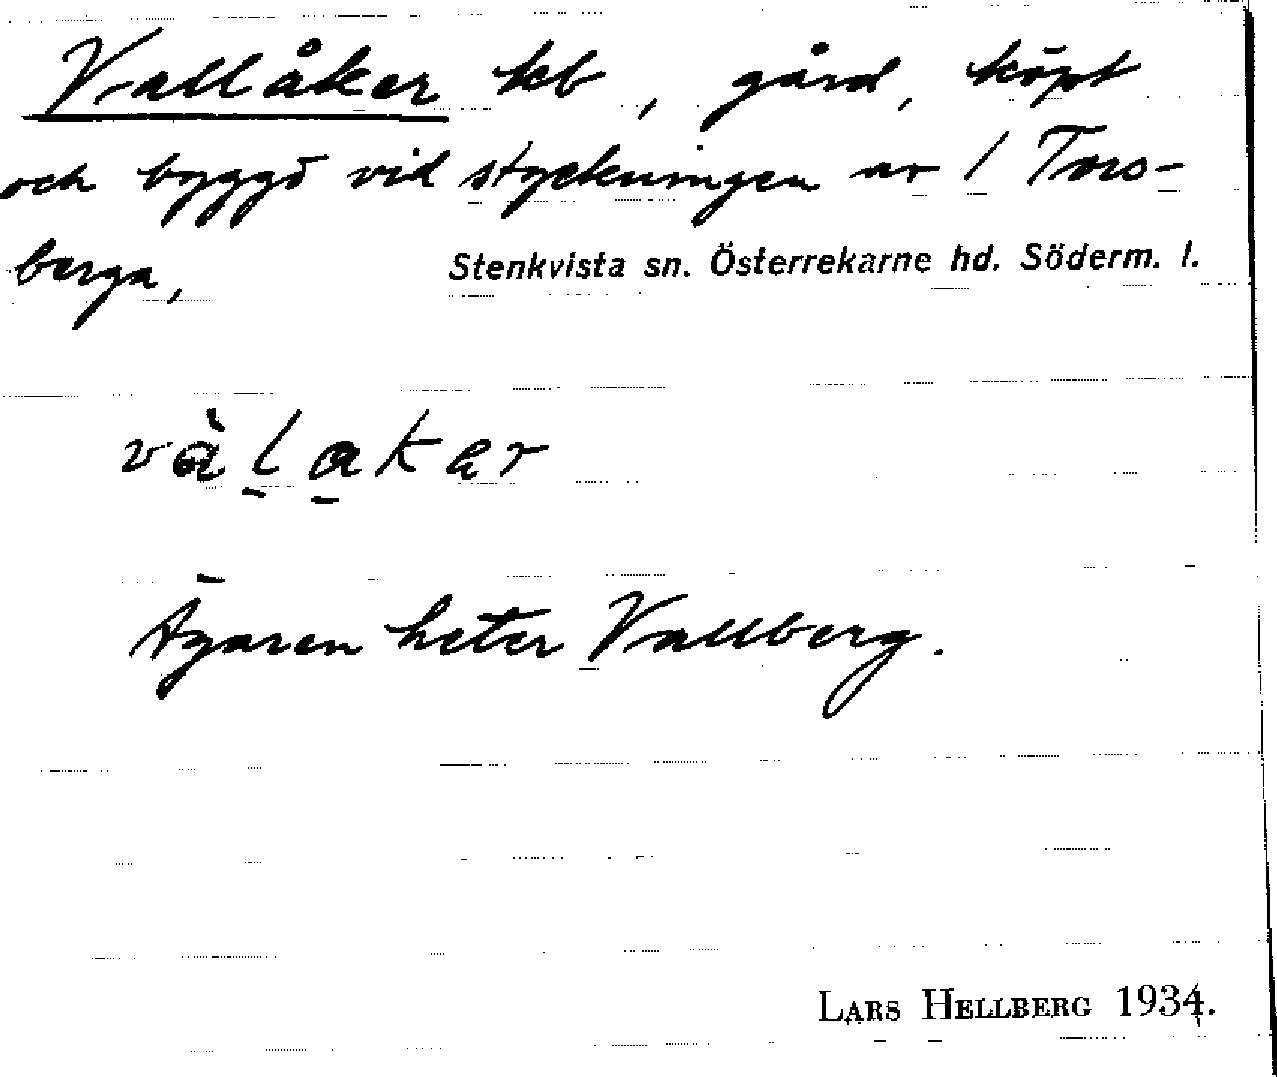 Vallåker hb, gård, köpt
och byggd vid styckningen av 1 Toro-
berga,
Stenkvista sn. Österrekarne hd. Söderm. l.
vàl̠a̠kar
Ägaren heter Vallberg.
LARS HELLBERG 1934.